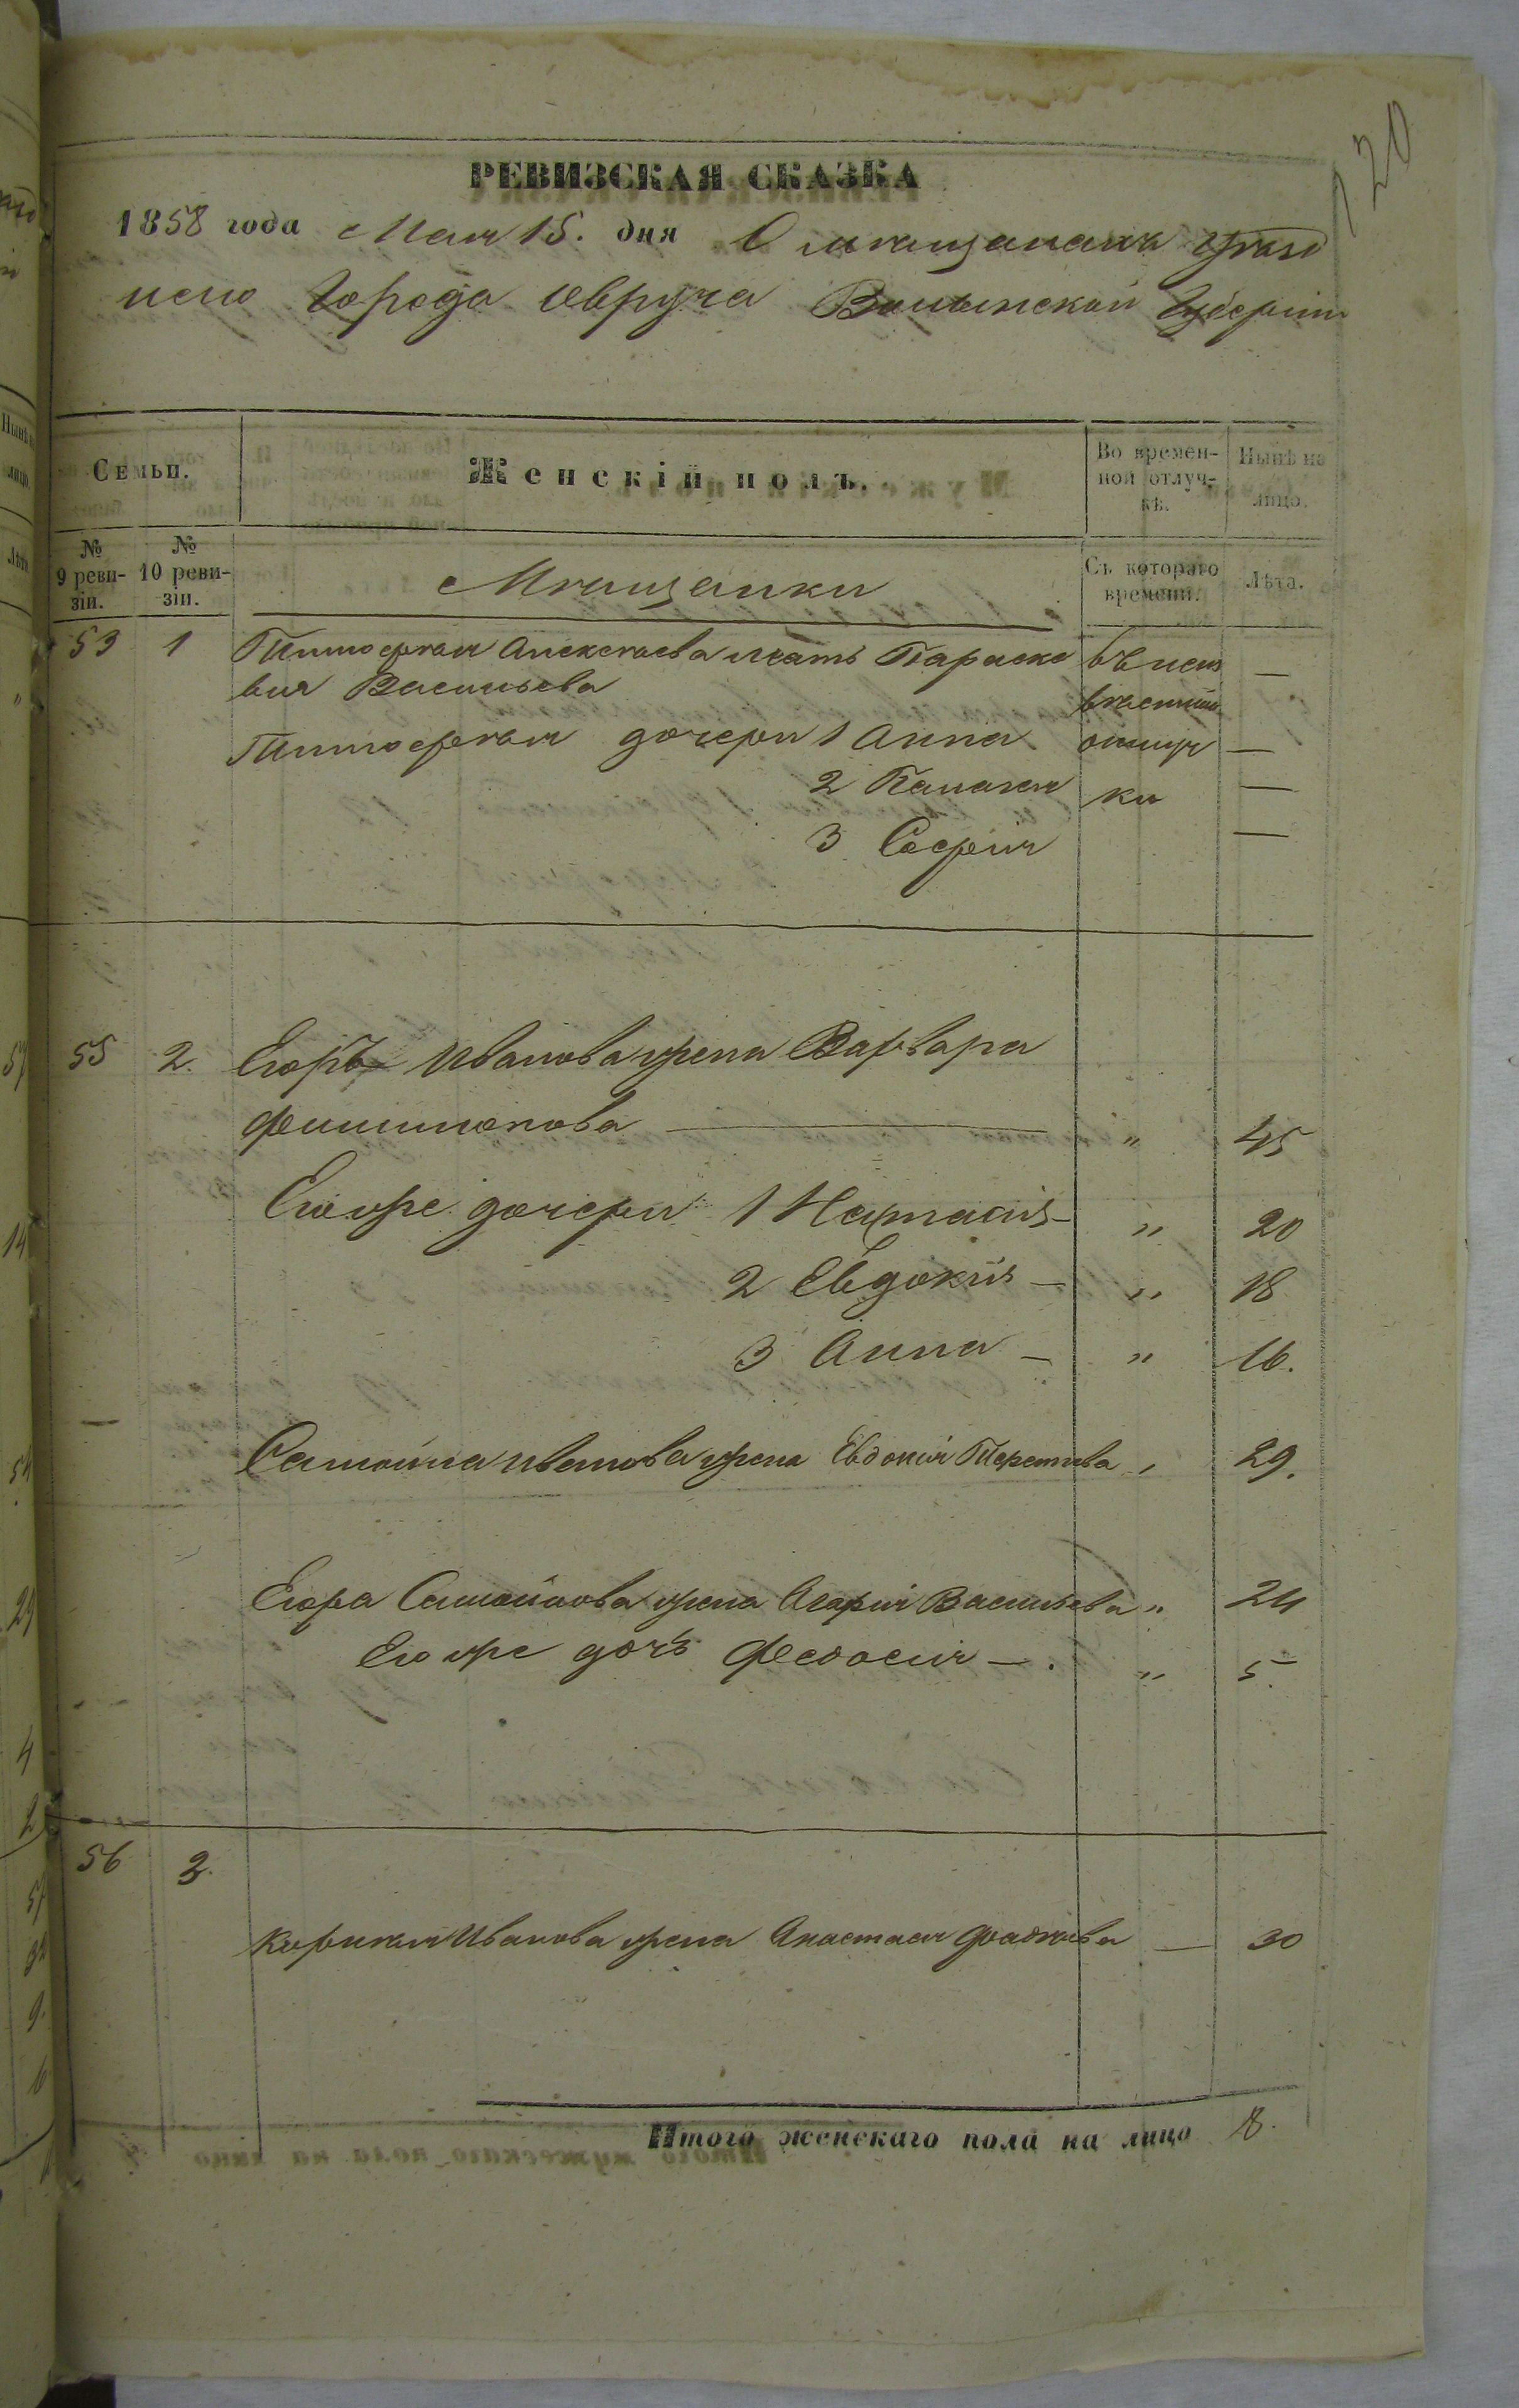 120
РЕВИЗСКАЯ СКАЗКА
1858 года Мая 15. дня О мѣщанахъ уѣзд
наго Города Овруча Волынской Губерніи
Семьи.
Женскій полъ.
Во времен-
ной отлуч-
кѣ.
Нынѣ на
лицо.
№
9 реви-
зіи.
№
10 реви-
зіи.
Мѣщанки
Съ котораго
времени.
Лѣта.
53 1 Тимофѣя Алексѣева мать Параске въ неиз —
вія Васильева вѣстной
Тимофѣя дочери 1 Анна отлуч —
2 Палагея ки —
3 Софія —
55 2. Егора Иванова жена Варвара
Филимонова — " 45
Его же дочери 1 Наталія — " 20
2 Евдокія — " 18
3 Анна — " 16.
Самойла Иванова жена Евдокія Терентьева " 29.
Егора Самойлова жена Агафія Васильева " 24
Его же дочь Федосия — . " 5.
56 3.
Иванова жена Анастасія Фадѣева — 30
Итого женскаго пола на лицо 8.